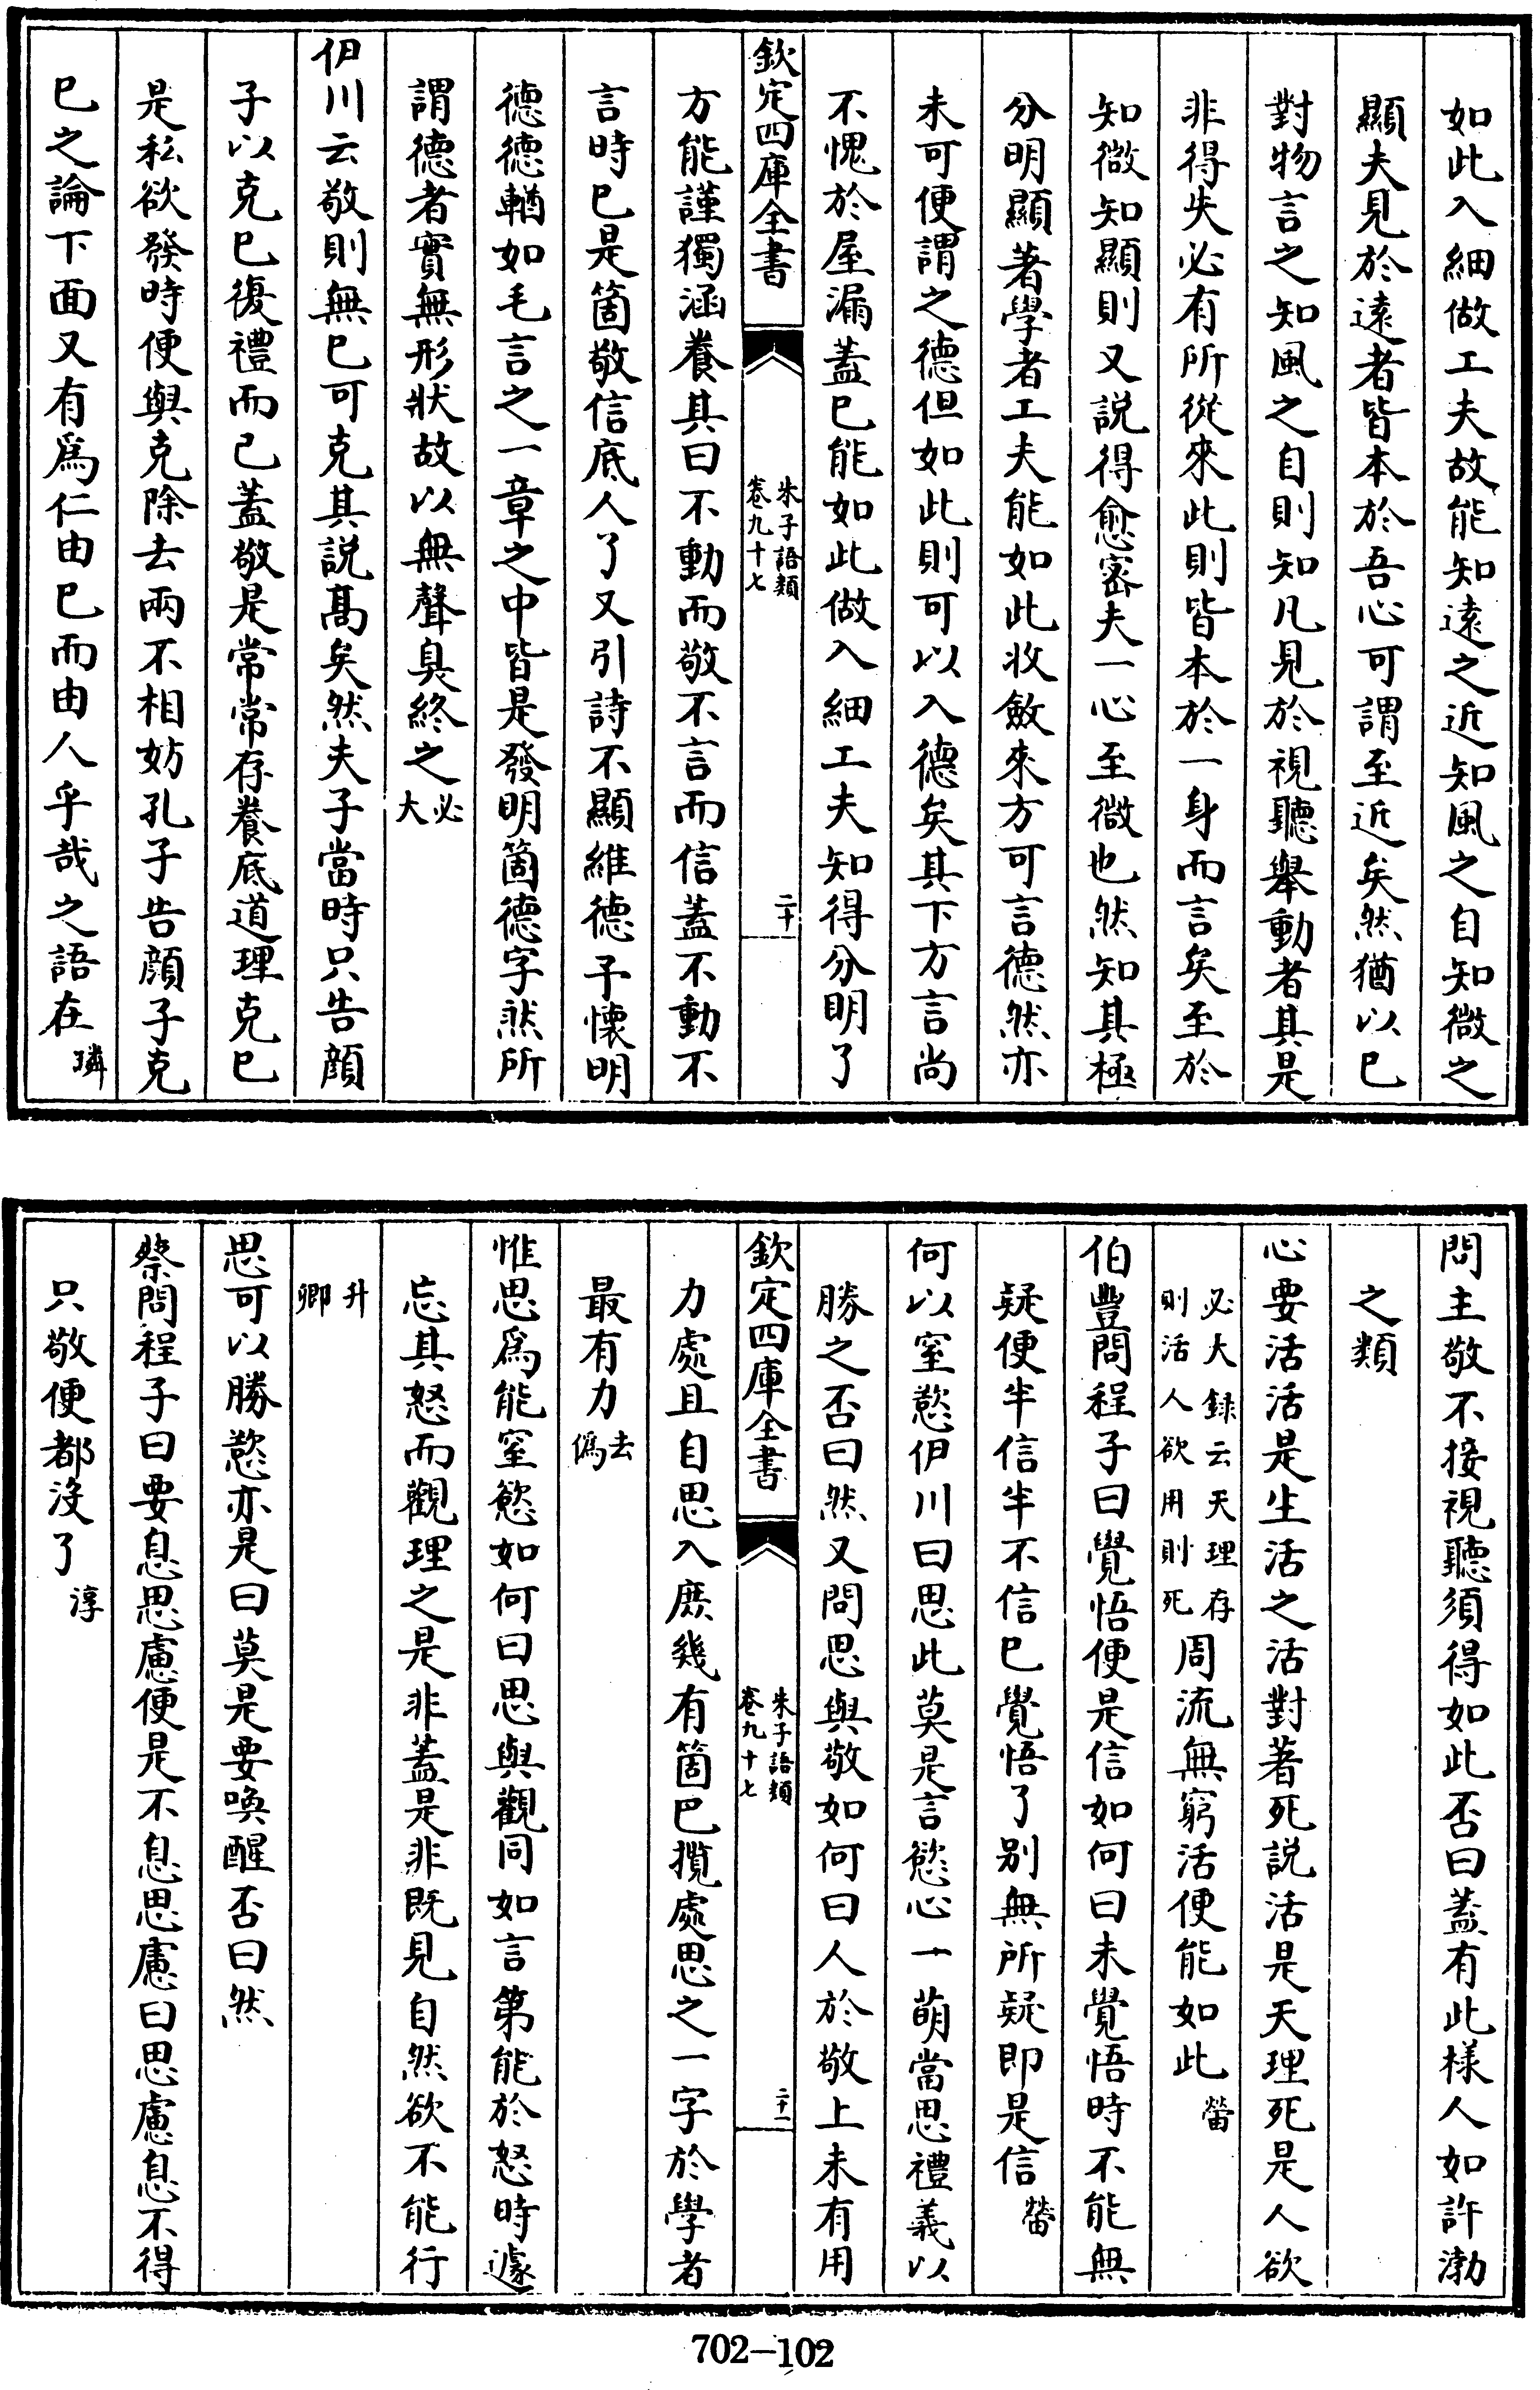 如此入細做工夫故能知遠之近知風之自知微之
顯夫見於遠者皆本於吾心可謂至近矣然猶以已
對物言之知風之自則知凡見於視聽舉動者其是
非得失必有所從來此則皆本於一身而言矣至於
知微知顯則又説得愈密夫一心至微也然知其極
分明顯著學者工夫能如此收斂來方可言德然亦
未可便謂之德但如此則可以入德矣其下方言尚
不愧於屋漏蓋已能如此做入細工夫知得分明了
欽定四庫全書
朱子語類
卷九十七
二十
方能謹獨涵養其曰不動而敬不言而信蓋不動不
言時已是箇敬信底人了又引詩不顯維德予懷明
德德輶如毛言之一章之中皆是發明箇德字然所
謂德者實無形狀故以無聲臭終之必大
伊川云敬則無已可克其説髙矣然夫子當時只告顔
子以克已復禮而已蓋敬是常常存養底道理克已
是私欲發時便與克除去兩不相妨孔子告顔子克
已之論下面又有爲仁由已而由人乎哉之語在璘
問主敬不接視聽須得如此否曰蓋有此樣人如許渤
之類
心要活活是生活之活對著死説活是天理死是人欲
必大録云天理存
則活人欲用則死
周流無窮活便能如此㽦
伯豐問程子曰覺悟便是信如何曰未覺悟時不能無
疑便半信半不信已覺悟了别無所疑即是信㽦
何以窒慾伊川曰思此莫是言慾心一萌當思禮義以
勝之否曰然又問思與敬如何曰人於敬上未有用
欽定四庫全書
朱子語類
卷九十七
二十一
力處且自思入庶幾有箇巴攬處思之一字於學者
最有力去僞
惟思爲能窒慾如何曰思與觀同如言第能於怒時遽
忘其怒而觀理之是非蓋是非既見自然欲不能行
升卿
思可以勝慾亦是曰莫是要喚醒否曰然
蔡問程子曰要息思慮便是不息思慮曰思慮息不得
只敬便都没了淳
702-102